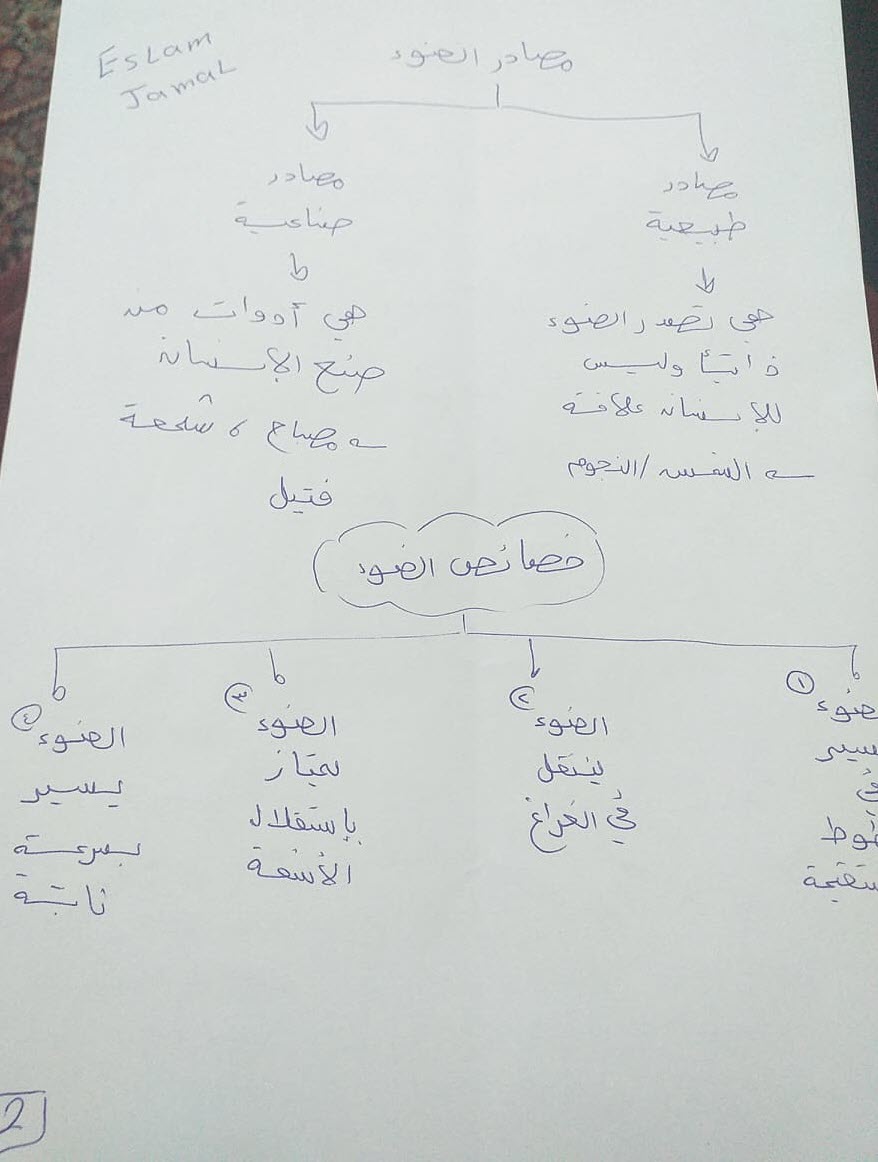 Eslam
Jamal
مصادر الضوء
مصادر
طبيعية
هي تصدر الضوء
ذاتيأ وليس
للإنسان علاقة
الشمس / النجوم
مصادر
صناعية
هي أدوات من
صنع الإنسان
مصباح ، شمعة
فتيل
خصائص الضوء
١
ضوء
سير
في
وط
ستقيمة
٢
الضوء
ينتقل
في الفراغ
٣
الضوء
يمتاز
بإستقلال
الأشعة
٤
الضوء
يسير
بسرعة
ثابتة
2